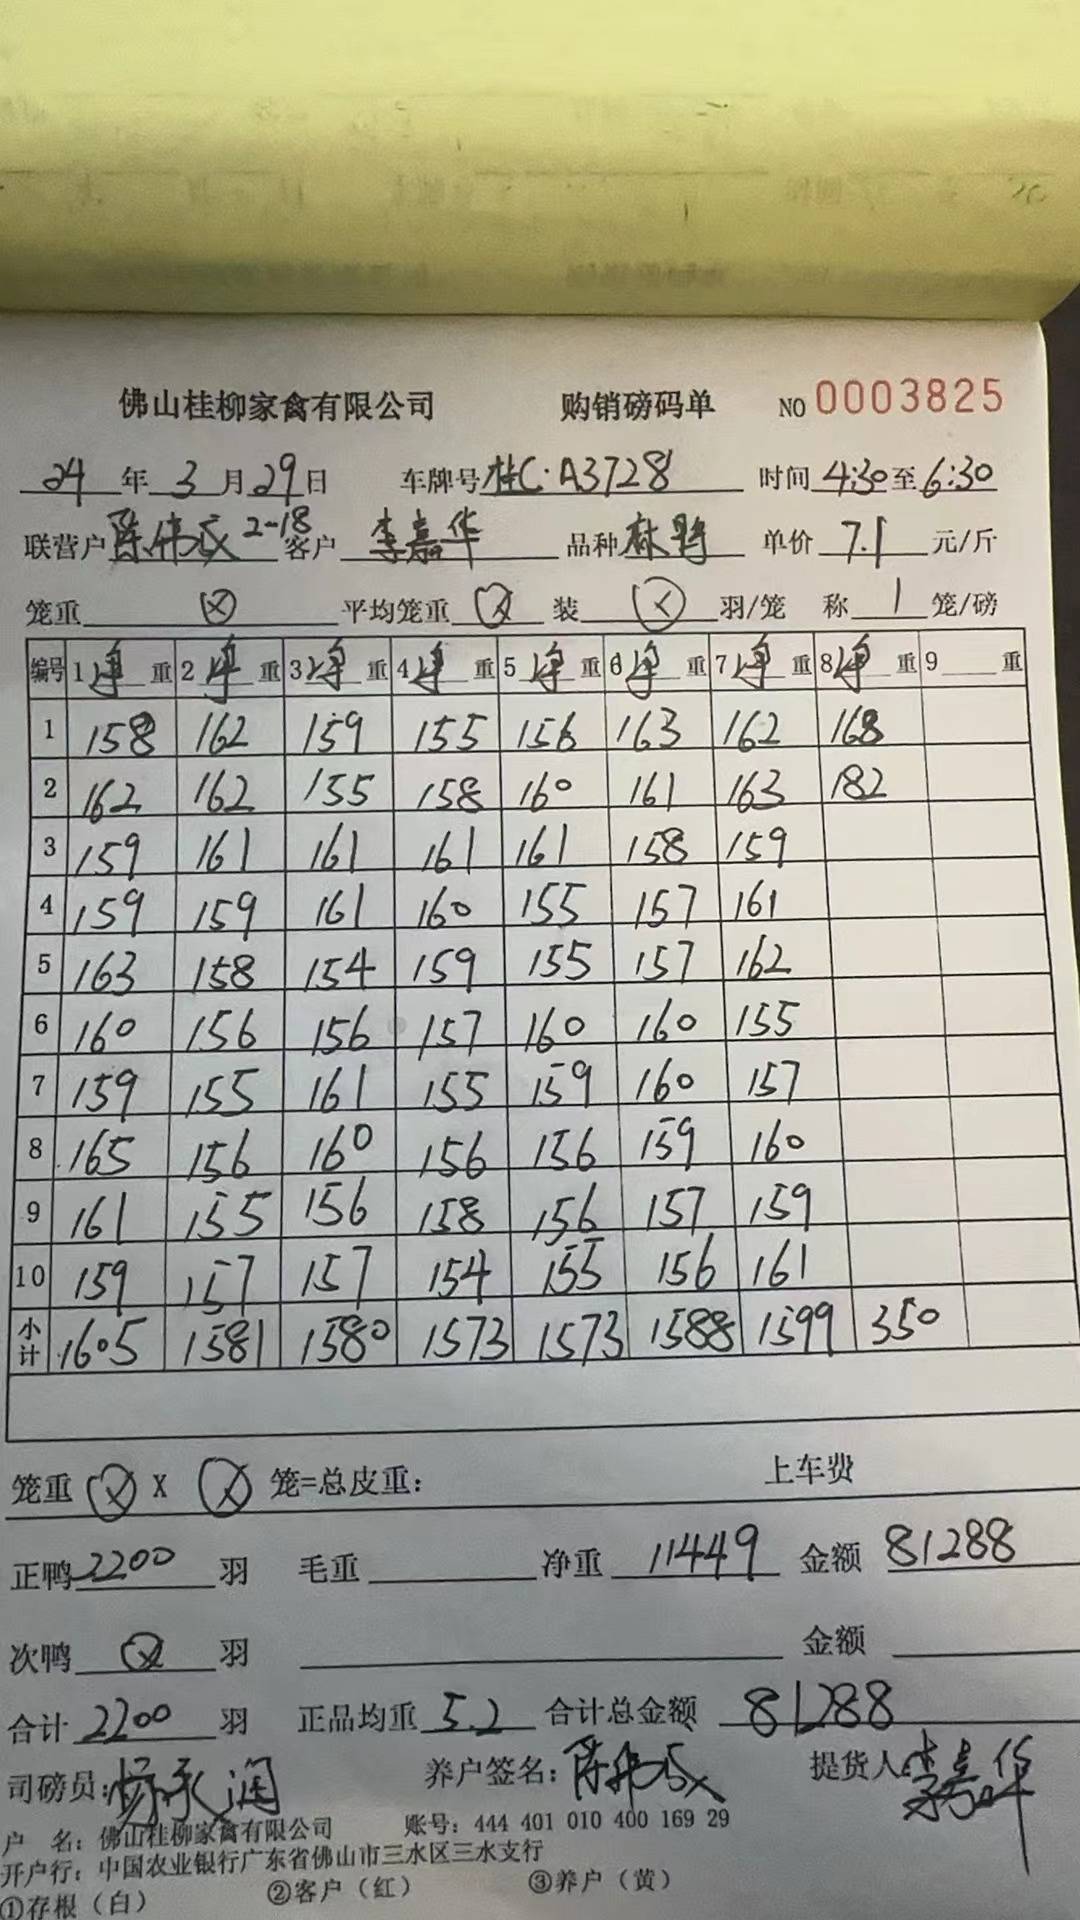 佛山桂柳家禽有限公司 购销磅码单 NO 0003825
24年3月29日 车牌号桂C·A3728 时间4:30至6:30
联营户陈伟成2-18 客户 李嘉华 品种麻鸭 单价7.1元/斤
笼重 平均笼重 装 羽/笼 称1笼/磅
编号 1净重 2净重 3净重 4净重 5净重 6净重 7净重 8净重 9 重
1 158 162 159 155 156 163 162 168
2 162 162 155 158 160 161 163 182
3 159 161 161 161 161 158 159
4 159 159 161 160 155 157 161
5 163 158 154 159 155 157 162
6 160 156 156 157 160 160 155
7 159 155 161 155 159 160 157
8 165 156 160 156 156 159 160
9 161 155 156 158 156 157 159
10 159 157 157 154 155 156 161
小计 1605 1581 1580 1573 1573 1588 1599 350
笼重 X 笼=总皮重: 上车费
正鸭2200羽 毛重 净重 11449 金额 81288
次鸭 羽 金额
合计2200羽 正品均重5.2 合计总金额 81288
司磅员: 养户签名:陈伟成 提货人:李嘉华
户 名: 佛山桂柳家禽有限公司 账号: 444 401 010 400 169 29
开户行: 中国农业银行广东省佛山市三水区三水支行
①存根(白) ②客户(红) ③养户(黄)